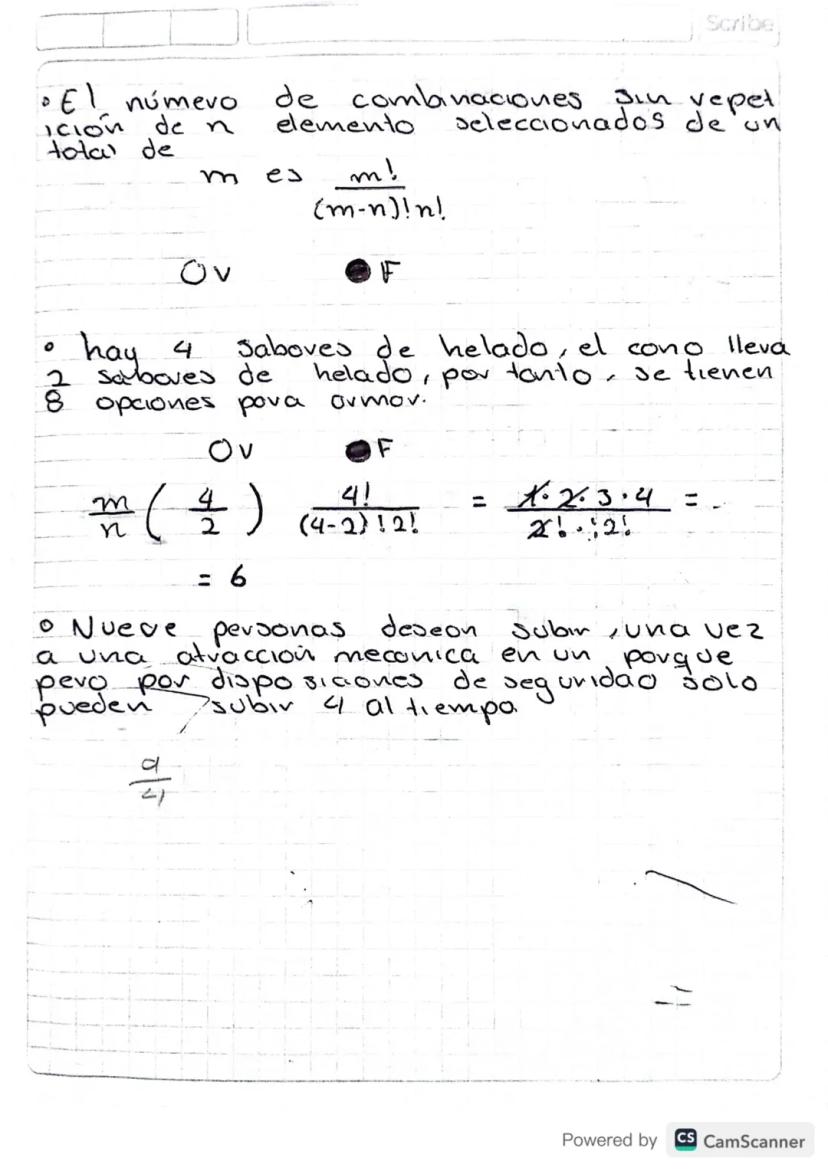 Scribe
• El número de combinaciones sin repet
ición de n elemento seleccionados de un
total de
m es m!
(m-n)!n!
O V ● F
• hay 4 sabores de helado, el cono lleva
2 sabores de helado, por tanto, se tienen
8 opciones para armar.
O V ● F
m/n ( 4/2 ) 4!/(4-2)!2! = 1·2·3·4/2!·¡2! = -
= 6
• Nueve personas desean subir, una vez
a una atracción mecanica en un parque
pero por disposiciones de seguridad solo
pueden subir 4 al tiempo
9/4
=
Powered by CS CamScanner